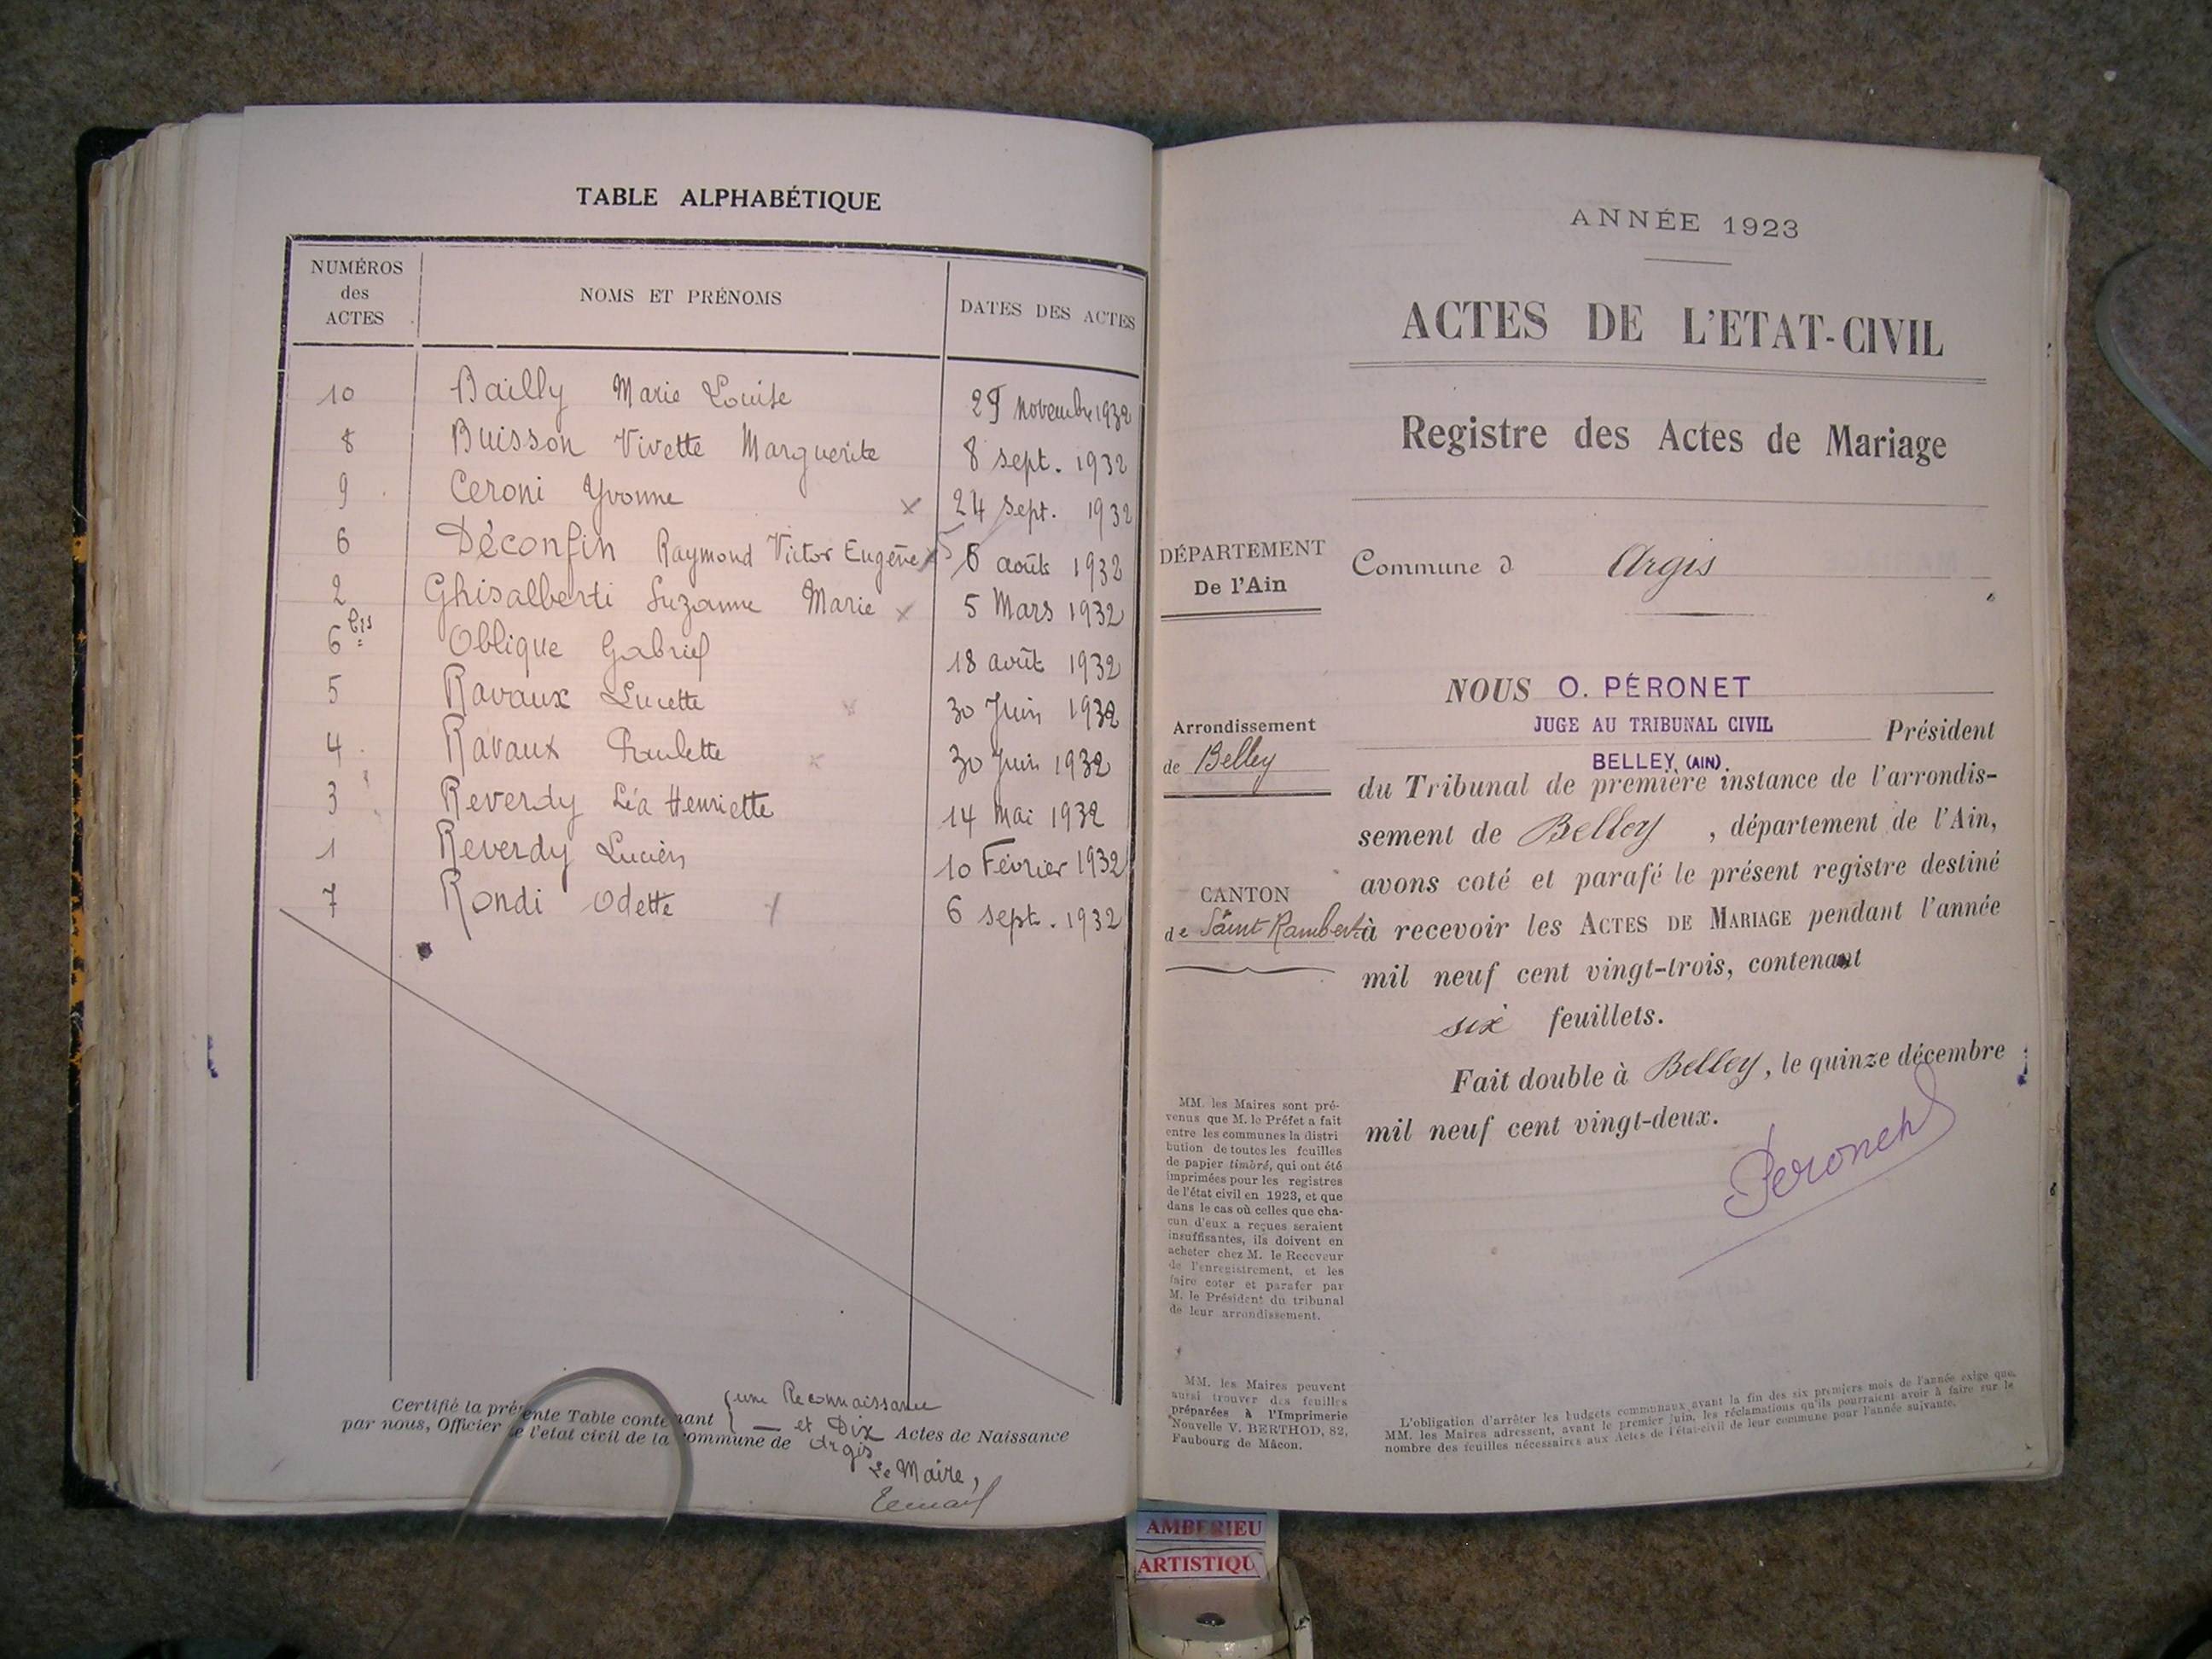 TABLE ALPHABÉTIQUE
NUMÉROS des ACTES NOMS ET PRÉNOMS DATES DES ACTES
10 Bailly Marie Louise 29 novembre 1932
8 Buisson Vivette Marguerite 8 sept. 1932
9 Ceroni Yvonne x 24 sept. 1932
6 Déconfin Raymond Victor Eugène x 6 août 1932
2 Ghisalberti Suzanne Marie x 5 Mars 1932
6 bis Oblique Gabriel 18 août 1932
5 Ravaux Lucette x 30 Juin 1932
4 Ravaux Paulette x 30 Juin 1932
3 Reverdy Léa Henriette 14 Mai 1932
1 Reverdy Lucien 10 Février 1932
7 Rondi Odette 6 sept. 1932
une Reconnaissance
Certifié la présente Table contenant et Dix Actes de Naissance
par nous, Officier de l'état civil de la commune de Argis
Le Maire,
ANNÉE 1923
ACTES DE L'ETAT-CIVIL
Registre des Actes de Mariage
DÉPARTEMENT
De l'Ain
Commune d Argis
Arrondissement
de Belley
CANTON
de Saint Rambert
NOUS O. PÉRONET
JUGE AU TRIBUNAL CIVIL Président
BELLEY (AIN).
du Tribunal de première instance de l'arrondis-
sement de Belley, département de l'Ain,
avons coté et parafé le présent registre destiné
à recevoir les ACTES DE MARIAGE pendant l'année
mil neuf cent vingt-trois, contenant
six feuillets.
Fait double à Belley, le quinze décembre
mil neuf cent vingt-deux.
Peronet
MM. les Maires sont pré-
venus que M. le Préfet a fait
entre les communes la distri
bution de toutes les feuilles
de papier timbré, qui ont été
imprimées pour les registres
de l'état civil en 1923, et que
dans le cas où celles que cha-
cun d'eux a reçues seraient
insuffisantes, ils doivent en
acheter chez M. le Receveur
de l'enregistrement, et les
faire coter et parafer par
M. le Président du tribunal
de leur arrondissement.
MM. les Maires peuvent
aussi trouver des feuilles
préparées à l'Imprimerie
Nouvelle V. BERTHOD, 82,
Faubourg de Mâcon.
L'obligation d'arrêter les budgets communaux avant la fin des six premiers mois de l'année exige que,
MM. les Maires adressent, avant le premier Juin, les réclamations qu'ils pourraient avoir à faire sur le
nombre des feuilles nécessaires aux Actes de l'état-civil de leur commune pour l'année suivante.
AMBERIEU
ARTISTIQU